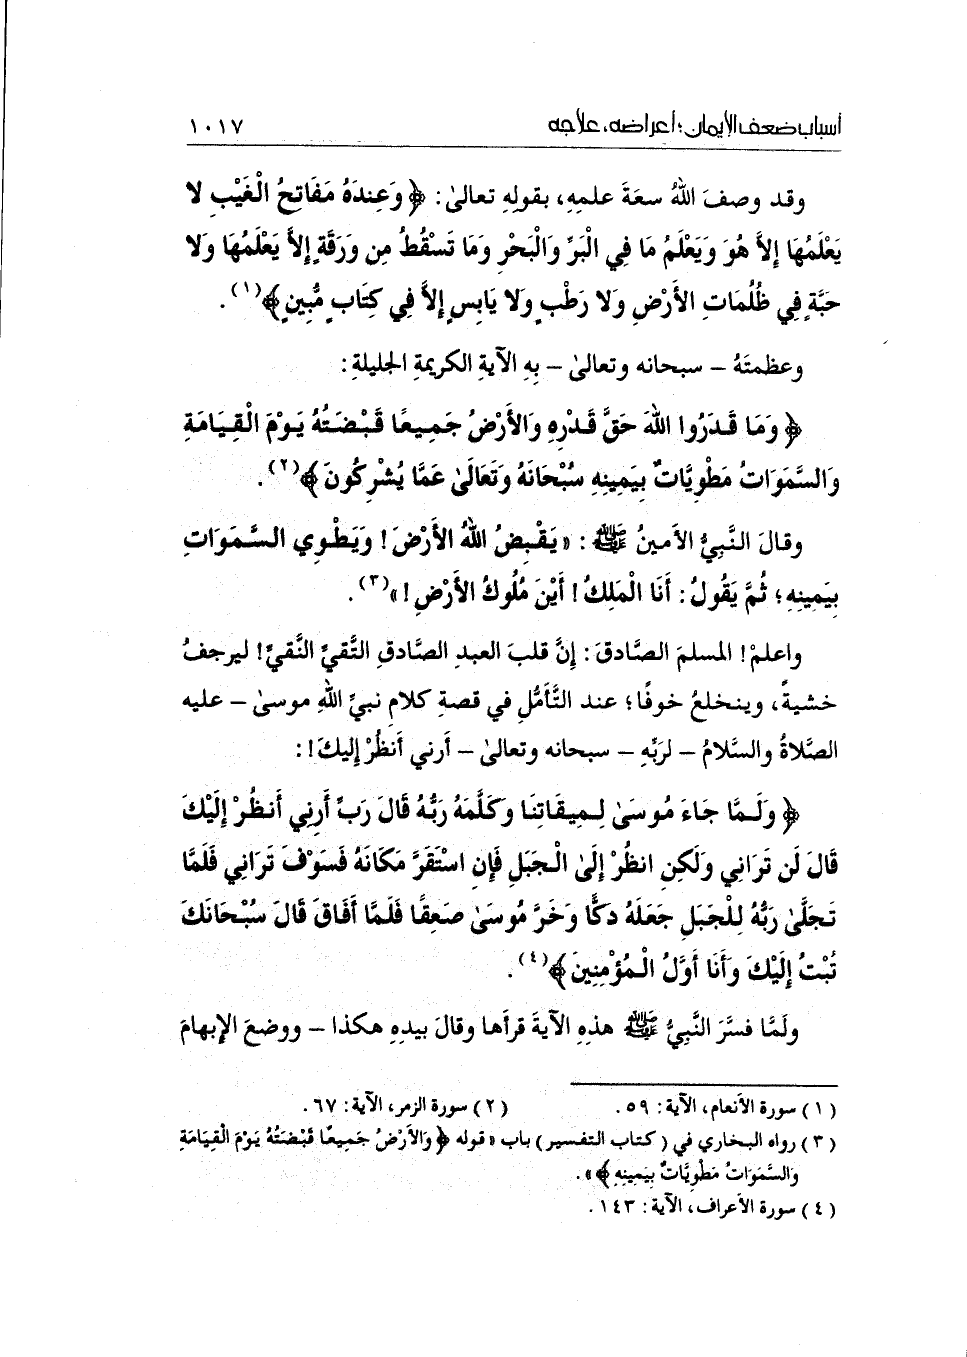 أسباب ضعف الإيمان؛ أعراضه، علاجه ١٠١٧
وقد وصفَ اللهُ سعةَ علمِهِ، بقولِهِ تعالىٰ: ﴿ وَعِندَهُ مَفَاتِحُ الْغَيْبِ لا
يَعْلَمُهَا إِلاَّ هُوَ وَيَعْلَمُ مَا فِي الْبَرِّ وَالْبَحْرِ وَمَا تَسْقُطُ مِن وَرَقَةٍ إِلاَّ يَعْلَمُهَا وَلا
حَبَّةٍ فِي ظُلُمَاتِ الأَرْضِ وَلا رَطْبٍ وَلا يَابِسٍ إِلاَّ فِي كِتَابٍ مُّبِينٍ ﴾(١).
وعظمتَهُ – سبحانه وتعالىٰ – بِهِ الآيةِ الكريمةِ الجليلةِ:
﴿ وَمَا قَدَرُوا اللَّهَ حَقَّ قَدْرِهِ وَالأَرْضُ جَمِيعًا قَبْضَتُهُ يَوْمَ الْقِيَامَةِ
وَالسَّمَوَاتُ مَطْوِيَّاتٌ بِيَمِينِهِ سُبْحَانَهُ وَتَعَالَىٰ عَمَّا يُشْرِكُونَ ﴾(٢).
وقالَ النَّبِيُّ الأمينُ ﷺ: «يَقْبِضُ اللهُ الأَرْضَ! وَيَطْوِي السَّمَوَاتِ
بِيَمِينِهِ؛ ثُمَّ يَقُولُ: أَنَا الْمَلِكُ! أَيْنَ مُلُوكُ الأَرْضِ!»(٣).
واعلمْ! المسلمَ الصَّادقَ: إنَّ قلبَ العبدِ الصَّادقِ التَّقيِّ النَّقيِّ! ليرجفُ
خشيةً، وينخلعُ خوفًا؛ عند التَّأمُّلِ في قصةِ كلامِ نبيِّ اللهِ موسىٰ – عليه
الصَّلاةُ والسَّلامُ – لربِّهِ – سبحانه وتعالىٰ – أرني أنظُرْ إليكَ!:
﴿ وَلَمَّا جَاءَ مُوسَىٰ لِمِيقَاتِنَا وَكَلَّمَهُ رَبُّهُ قَالَ رَبِّ أَرِنِي أَنظُرْ إِلَيْكَ
قَالَ لَن تَرَانِي وَلَكِنِ انظُرْ إِلَى الْجَبَلِ فَإِنِ اسْتَقَرَّ مَكَانَهُ فَسَوْفَ تَرَانِي فَلَمَّا
تَجَلَّىٰ رَبُّهُ لِلْجَبَلِ جَعَلَهُ دَكًّا وَخَرَّ مُوسَىٰ صَعِقًا فَلَمَّا أَفَاقَ قَالَ سُبْحَانَكَ
تُبْتُ إِلَيْكَ وَأَنَا أَوَّلُ الْمُؤْمِنِينَ ﴾(٤).
ولَمَّا فسَّرَ النَّبِيُّ ﷺ هذِهِ الآيةَ قرأها وقالَ بيدِهِ هكذا – ووضعَ الإبهامَ
(١) سورة الأنعام، الآية: ٥٩. (٢) سورة الزمر، الآية: ٦٧.
(٣) رواه البخاري في (كتاب التفسير) باب «قوله ﴿ وَالأَرْضُ جَمِيعًا قَبْضَتُهُ يَوْمَ الْقِيَامَةِ
وَالسَّمَوَاتُ مَطْوِيَّاتٌ بِيَمِينِهِ ﴾».
(٤) سورة الأعراف، الآية: ١٤٣.